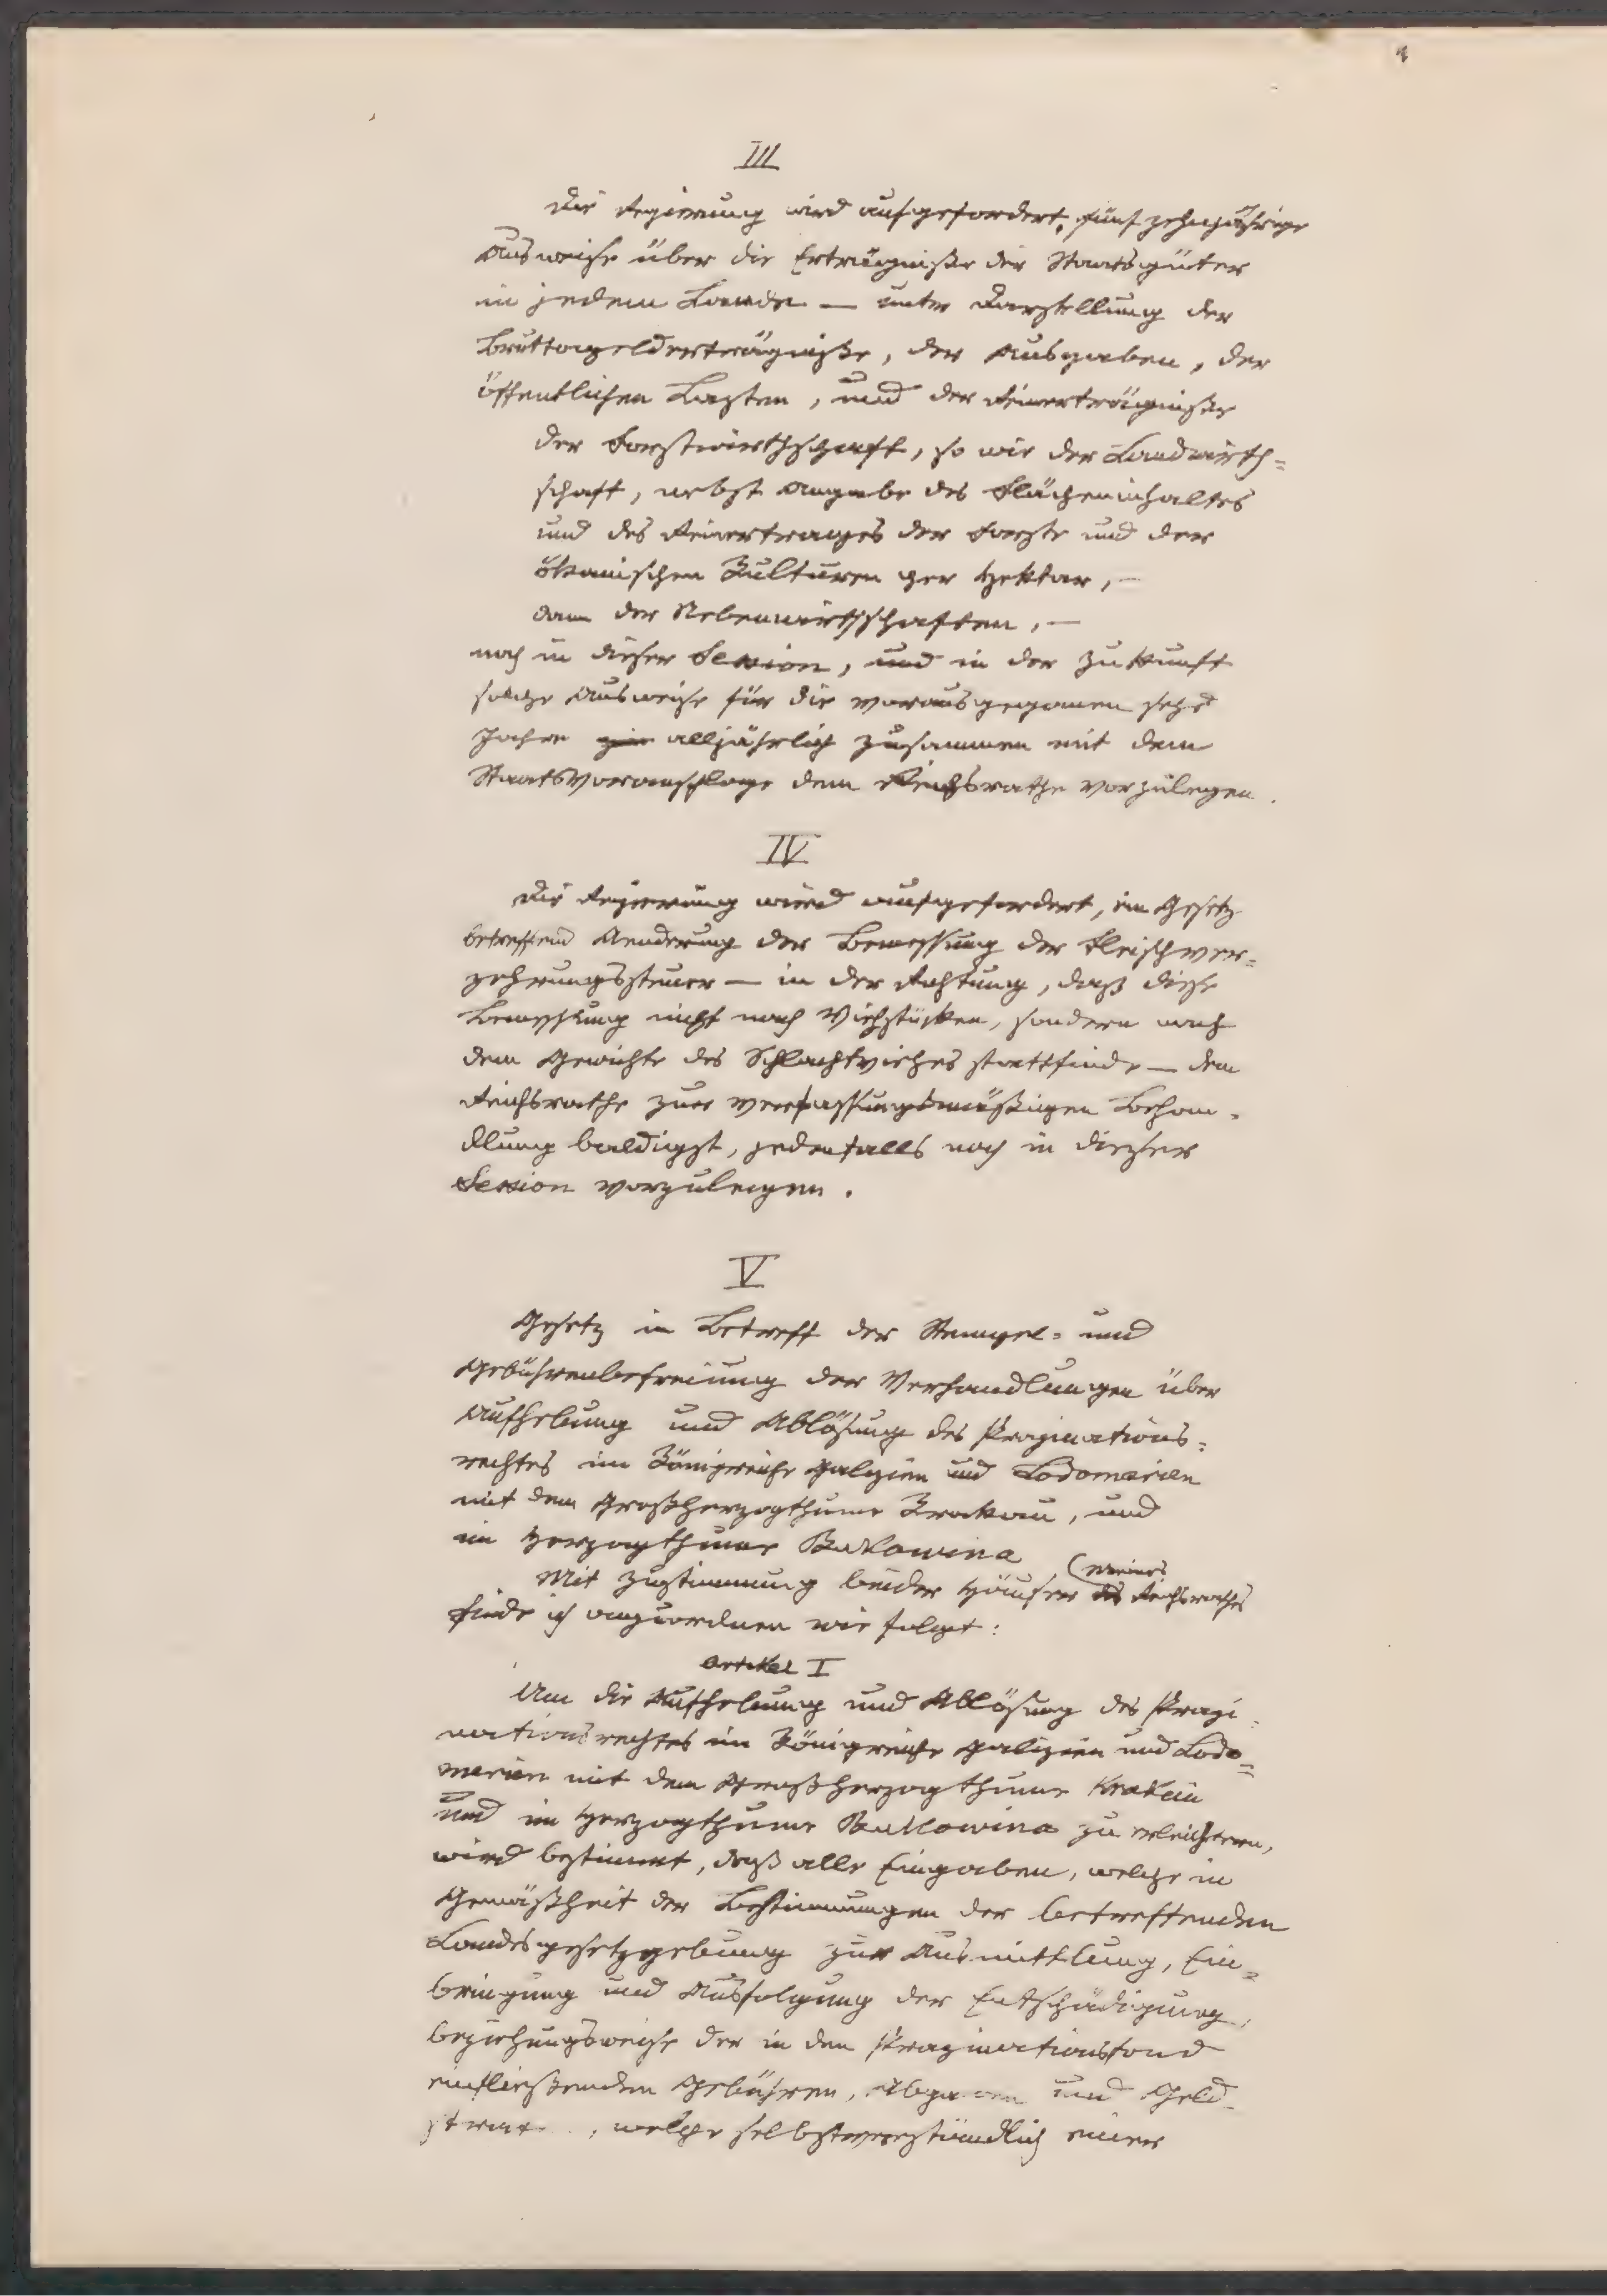 III
Die Regierung wird aufgefordert, fünfzehnjährige
Ausweise über die Erträgniße der Staatsgüter
in jedem Lande — unter Darstellung der
Bruttogelderträgniße, der Ausgaben, der
öffentlichen Lasten, und der Reinerträgniße
der Forstwirthschaft, so wie der Landwirth=
schaft, nebst Angabe des Flächeninhaltes
und des Reinertrages der Forste und der
ökonischen Kulturen per Hektar, —
dann der Nebenwirthschaften, —
noch in dieser Session, und in der Zukunft
solche Ausweise für die vorausgegangenen
Jahre alljährlich zusammen mit dem
Staatsvoranschlage dem Reichsrathe vorzulegen.
IV
Die Regierung wird aufgefordert, ein Gesetz
betreffend Aenderung der Bemessung der Fleischver=
zehrungssteuer — in der Richtung, daß diese
Bemessung nicht nach Viehstücken, sondern nach
dem Gewichte des Schlachtviehes stattfinde — dem
Reichsrathe zur verfassungsmäßigen Behan=
dlung baldigst, jedenfalls noch in dieser
Session vorzulegen.
V
Gesetz in Betreff der Stempel= und
Gebührenbefreiung der Verhandlungen über
Aufhebung und Ablösung des Propinations=
rechtes im Königreiche Galizien und Lodomerien
mit dem Großherzogthume Krakau, und
im Herzogthume Bukowina
Mit Zustimmung beider Häuser des (meines Reichsrathes
finde ich anzuordnen wie folgt:
Artikel I
Um die Aufhebung und Ablösung des Propi=
nationsrechtes im Königreiche Galizien und Lodo=
merien mit dem Großherzogthume Krakau
und im Herzogthume Bukowina zu erleichtern,
wird bestimmt, daß alle Eingaben, welche in
Gemäßheit der Bestimmungen der betreffenden
Landesgesetzgebung zur Ausmittlung, Ein=
bringung und Ausfolgung der Entschädigung,
beziehungsweise der in den Propinationsfond
einfließenden Gebühren, Abgaben und Geld
, welche selbstverständlich einer